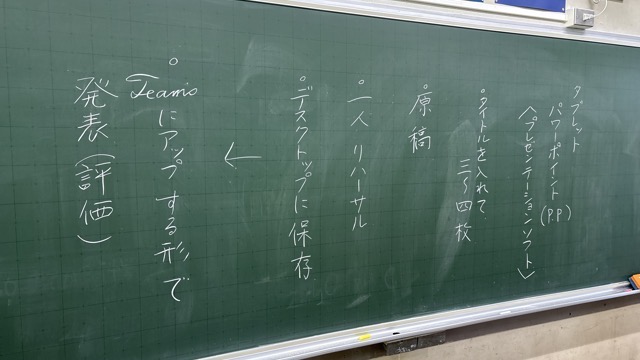 タブレット
パワーポイント(P.P)
〈プレゼンテーションソフト〉
。タイトルを入れて
三〜四枚
。原稿
。一人リハーサル
。デスクトップに保存
←
。Teamsにアップする形で
発表(評価)